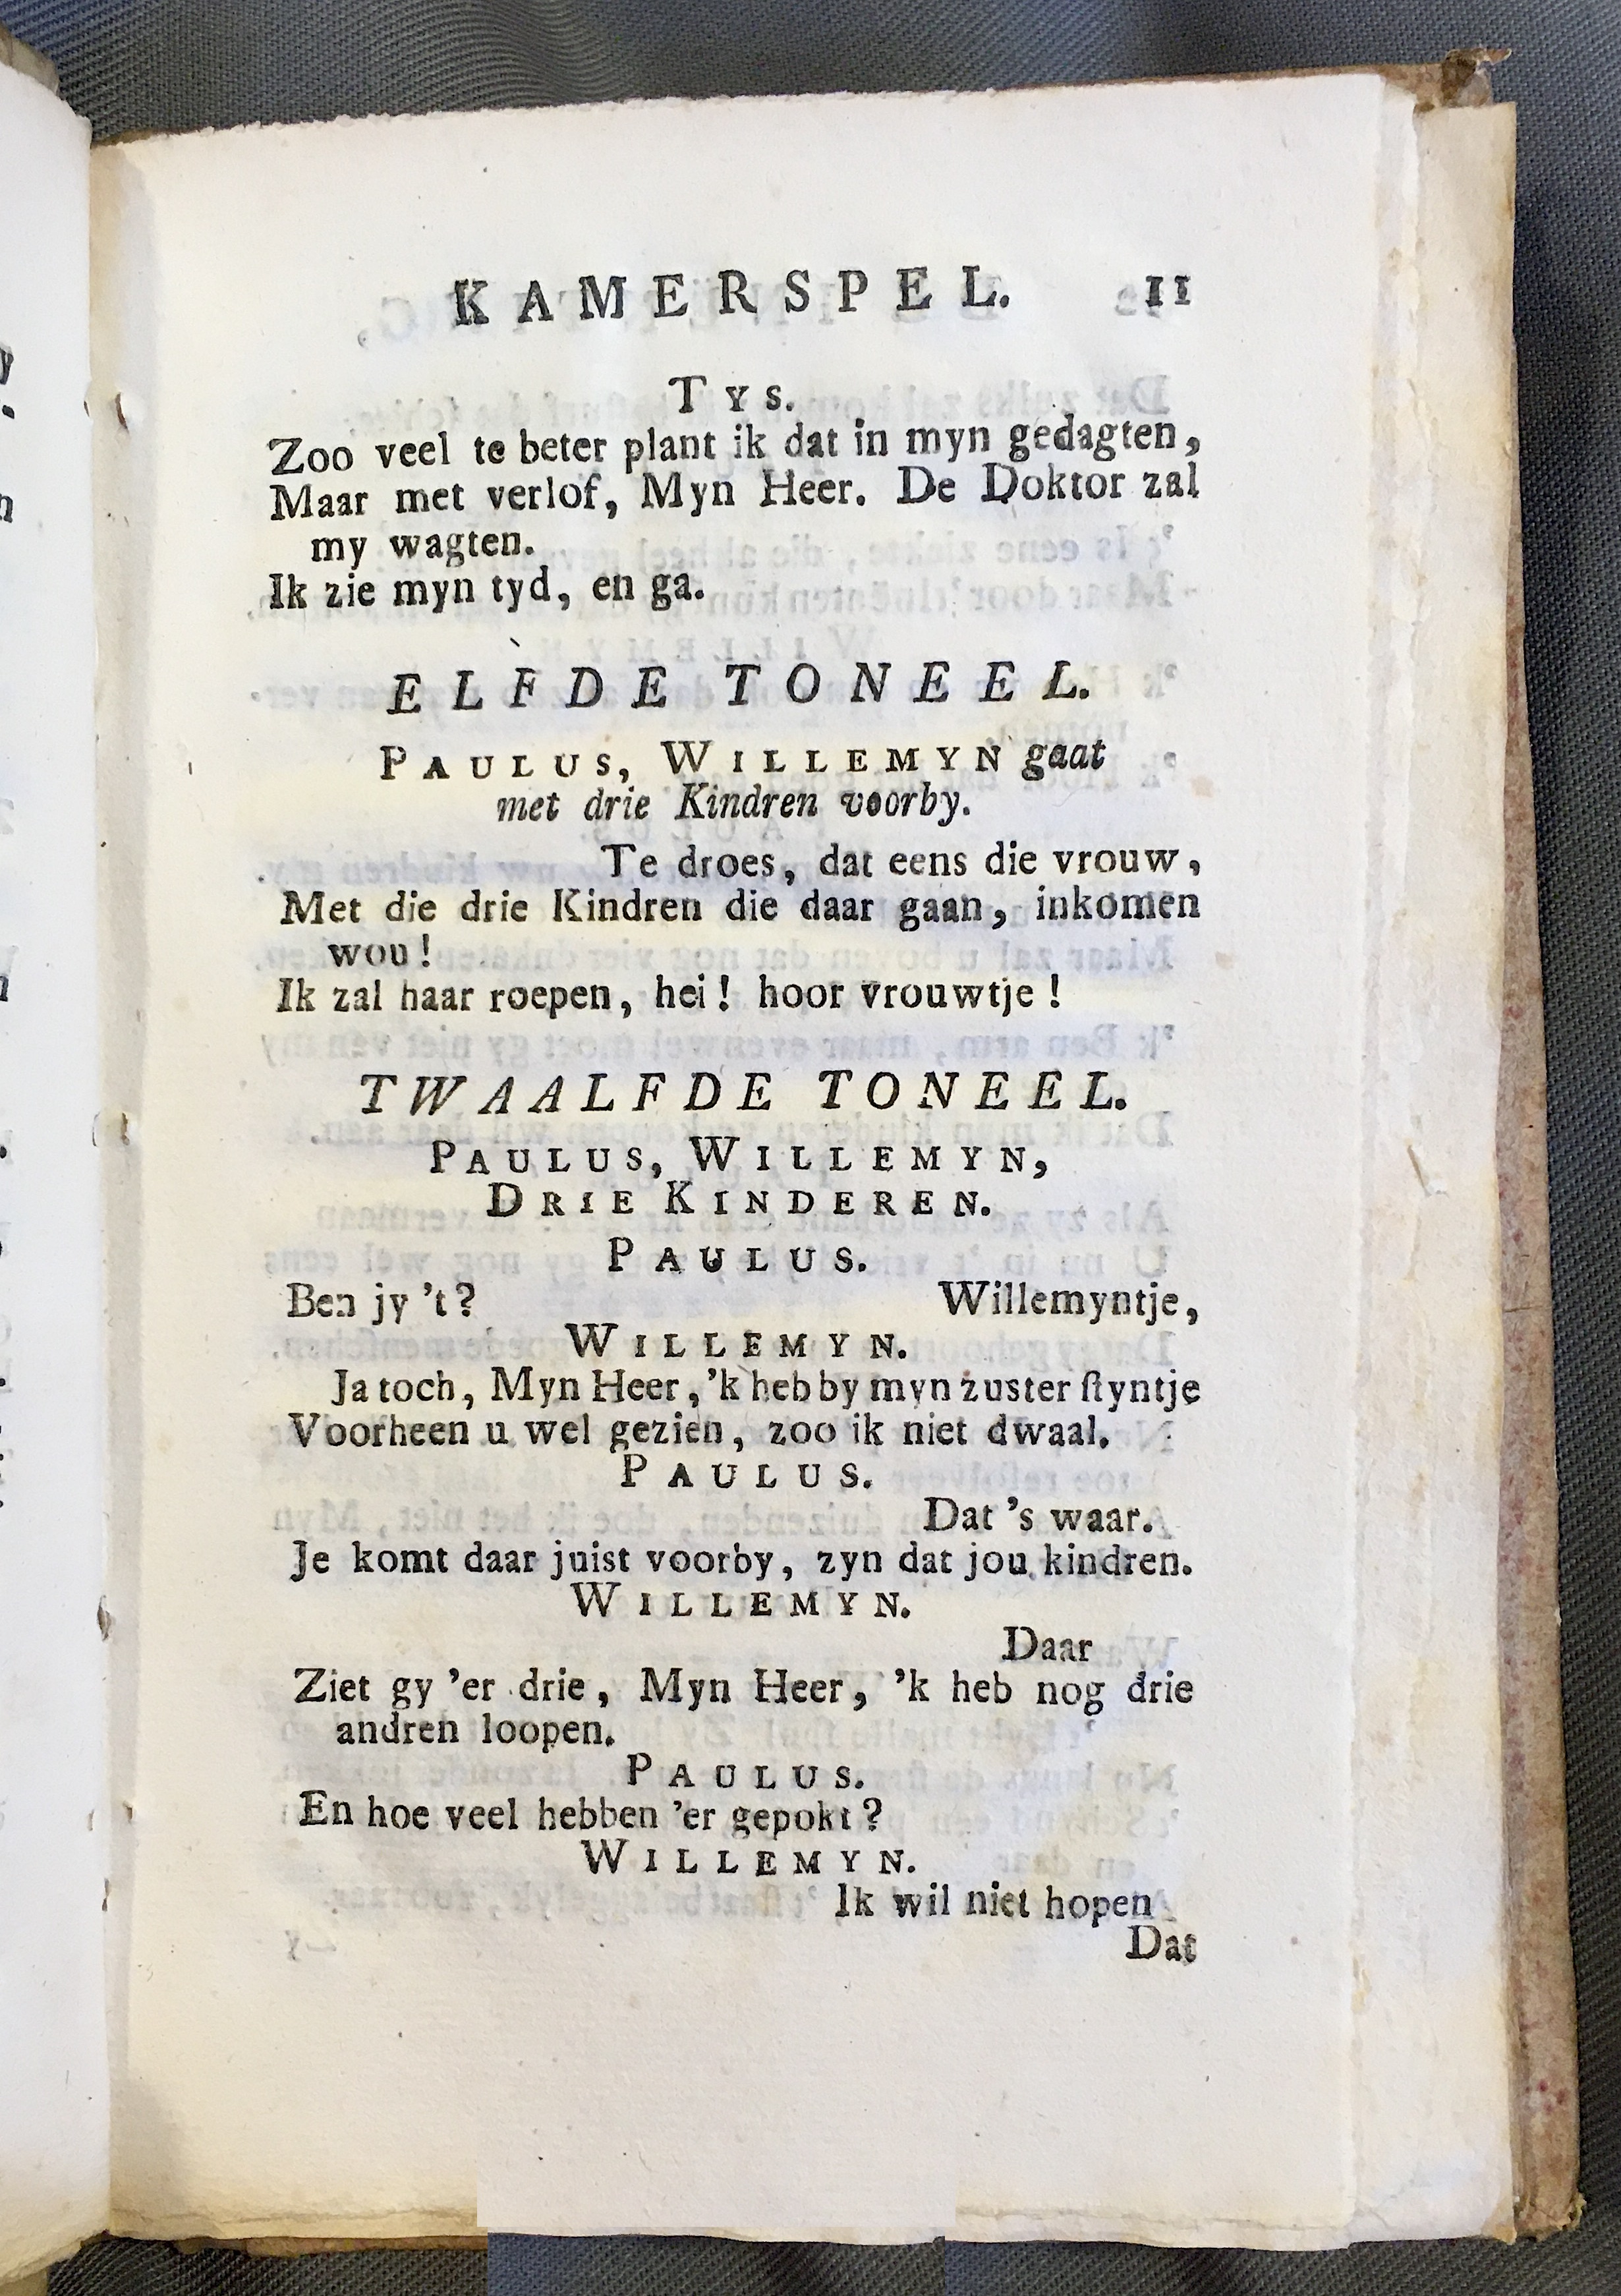 KAMERSPEL. 11
TYS.
Zoo veel te beter plant ik dat in myn gedagten,
Maar met verlof, Myn Heer. De Doktor zal
my wagten.
Ik zie myn tyd, en ga.
ELFDE TONEEL.
PAULUS, WILLEMYN gaat
met drie Kindren voorby.
Te droes, dat eens die vrouw,
Met die drie Kindren die daar gaan, inkomen
wou!
Ik zal haar roepen, hei! hoor vrouwtje!
TWAALFDE TONEEL.
PAULUS, WILLEMYN,
DRIE KINDEREN.
PAULUS.
Ben jy 't? Willemyntje,
WILLEMYN.
Ja toch, Myn Heer, 'k heb by myn zuster ſtyntje
Voorheen u wel gezien, zoo ik niet dwaal.
PAULUS.
Dat 's waar.
Je komt daar juist voorby, zyn dat jou kindren.
WILLEMYN.
Daar
Ziet gy 'er drie, Myn Heer, 'k heb nog drie
andren loopen.
PAULUS.
En hoe veel hebben 'er gepokt?
WILLEMYN.
Ik wil niet hopen
Dat